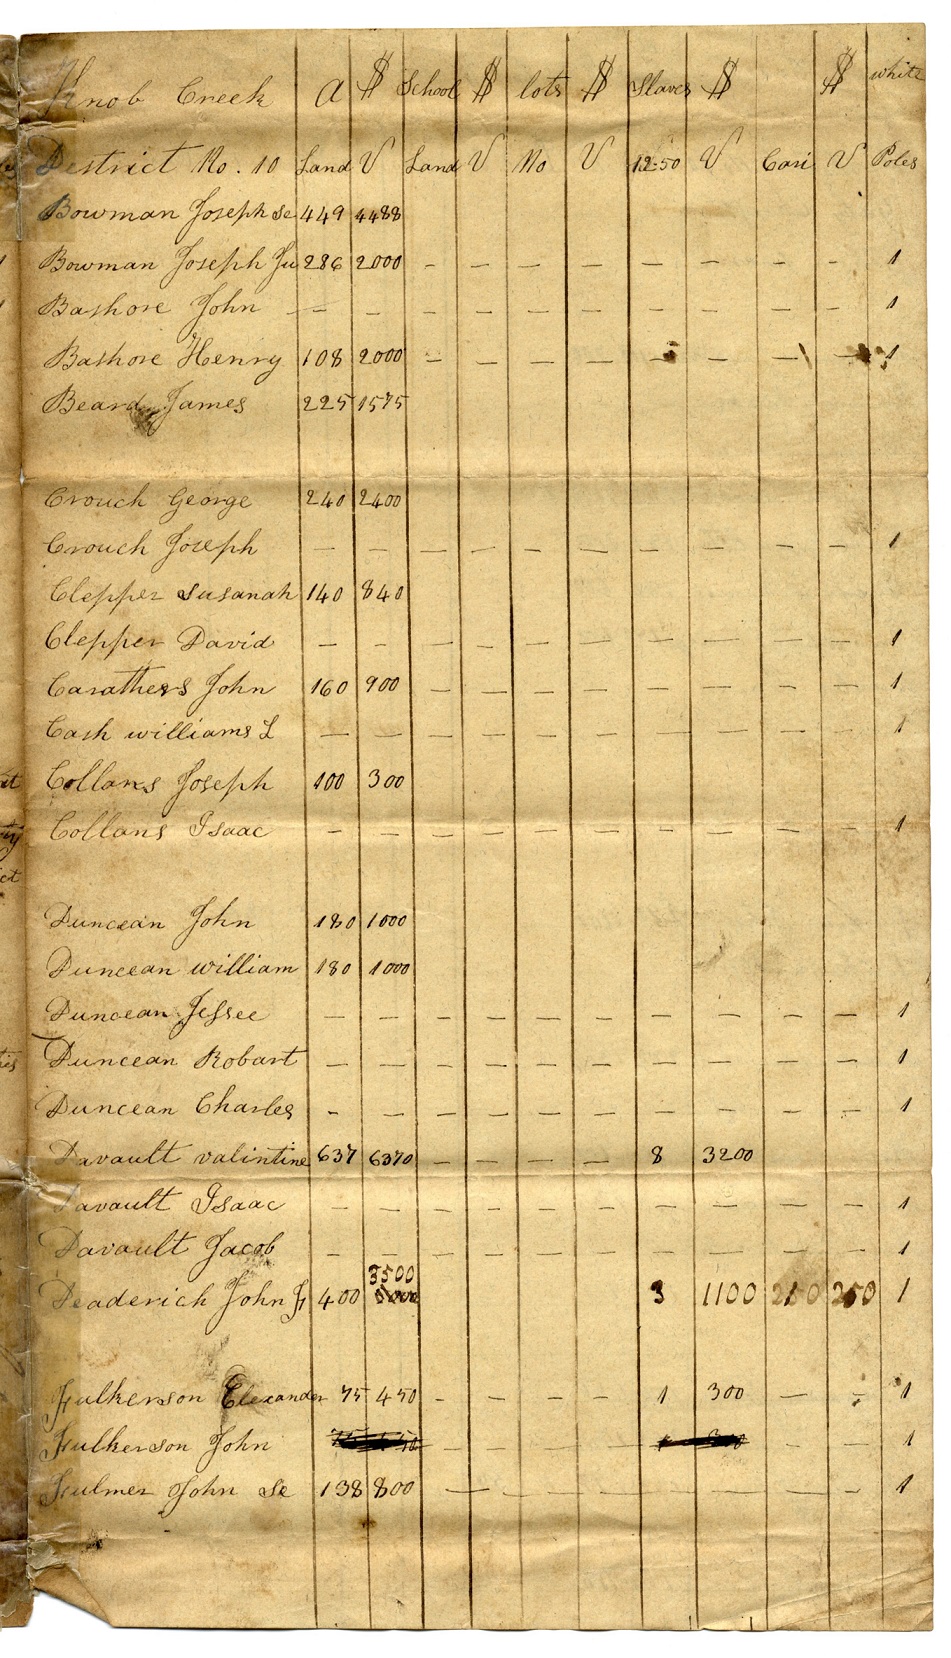 Knob Creek A $ School $ lots $ Slaves $ $ white
Destrict No. 10 Land V Land V No V 12-50 V Cari V Poles
Bowman Joseph Se 449 4488
Bowman Joseph Ju 286 2000 - - - - - - - - - 1
Bashore John - - - - - - - - - - - 1
Bashore Henry 108 2000 - - - - - - - - - 1
Beard James 225 1575
Crouch George 240 2400
Crouch Joseph - - - - - - - - - - - 1
Clepper Susanah 140 840
Clepper David - - - - - - - - - - - 1
Carathers John 160 900 - - - - - - - - - 1
Cash williams L - - - - - - - - - - - 1
Collans Joseph 100 300
Collans Isaac - - - - - - - - - - - 1
Duncean John 180 1000
Duncean william 180 1000
Duncean Jessee - - - - - - - - - - - 1
Duncean Robart - - - - - - - - - - - 1
Duncean Charles - - - - - - - - - - - 1
Davault valintine 637 6370 - - - - 8 3200
Davault Isaac - - - - - - - - - - - 1
Davault Jacob - - - - - - - - - - - 1
3500
Deaderich John F 400 5000 3 1100 250 250 1
Fulkerson Elexander 75 450 - - - - 1 300 - - 1
Fulkerson John - - - - - - 1
Fulmer John Se 138 800 - - - - - - - - - 1